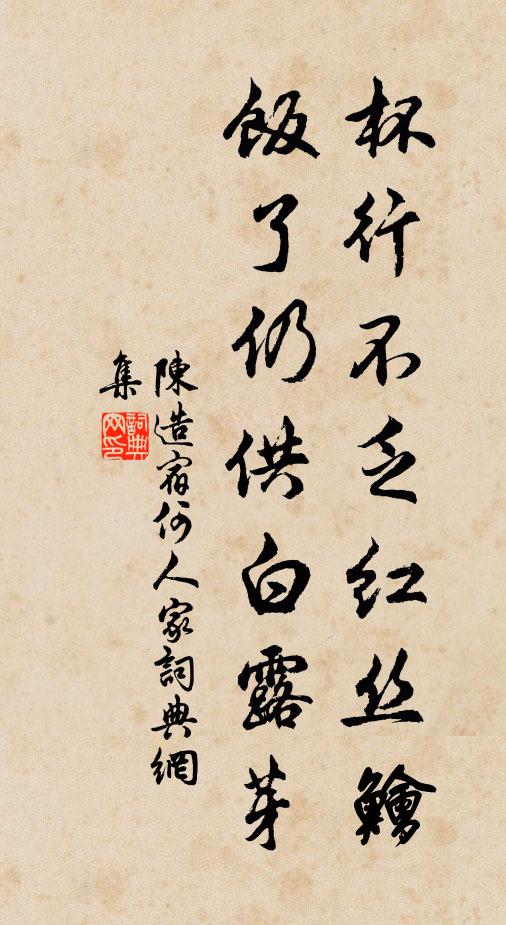 杯行不乏红丝鱠
飯了仍供白露芽
陳造宿何人家詞典網
集
詞典网印